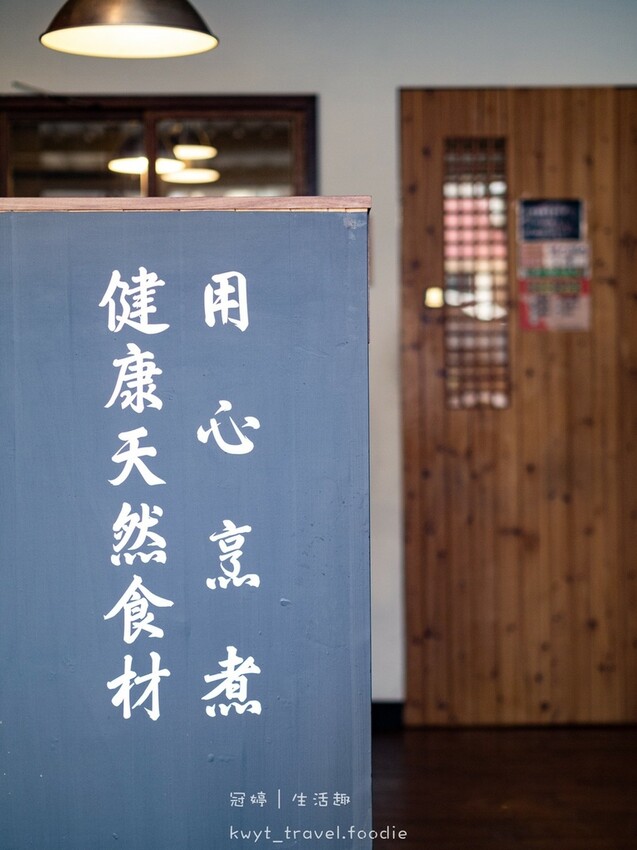 用心烹煮
健康天然食材
冠婷｜生活趣
kwyt_travel.foodie